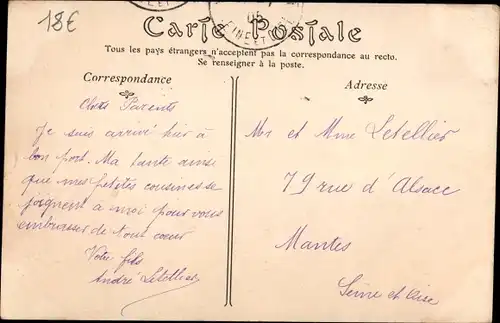 18€
Carte Postale
05
SEINE ET
Tous les pays étrangers n'acceptent pas la correspondance au recto.
Se renseigner à la poste.
Correspondance
Chers Parents
Je suis arrivé hier à
bon port. Ma tante ainsi
que mes petites cousines se
joignent à moi pour vous
embrasser de tout cœur
Votre fils
André Letellier
Adresse
Mr et Mme Letellier
79 rue d'Alsace
Mantes
Seine et Oise